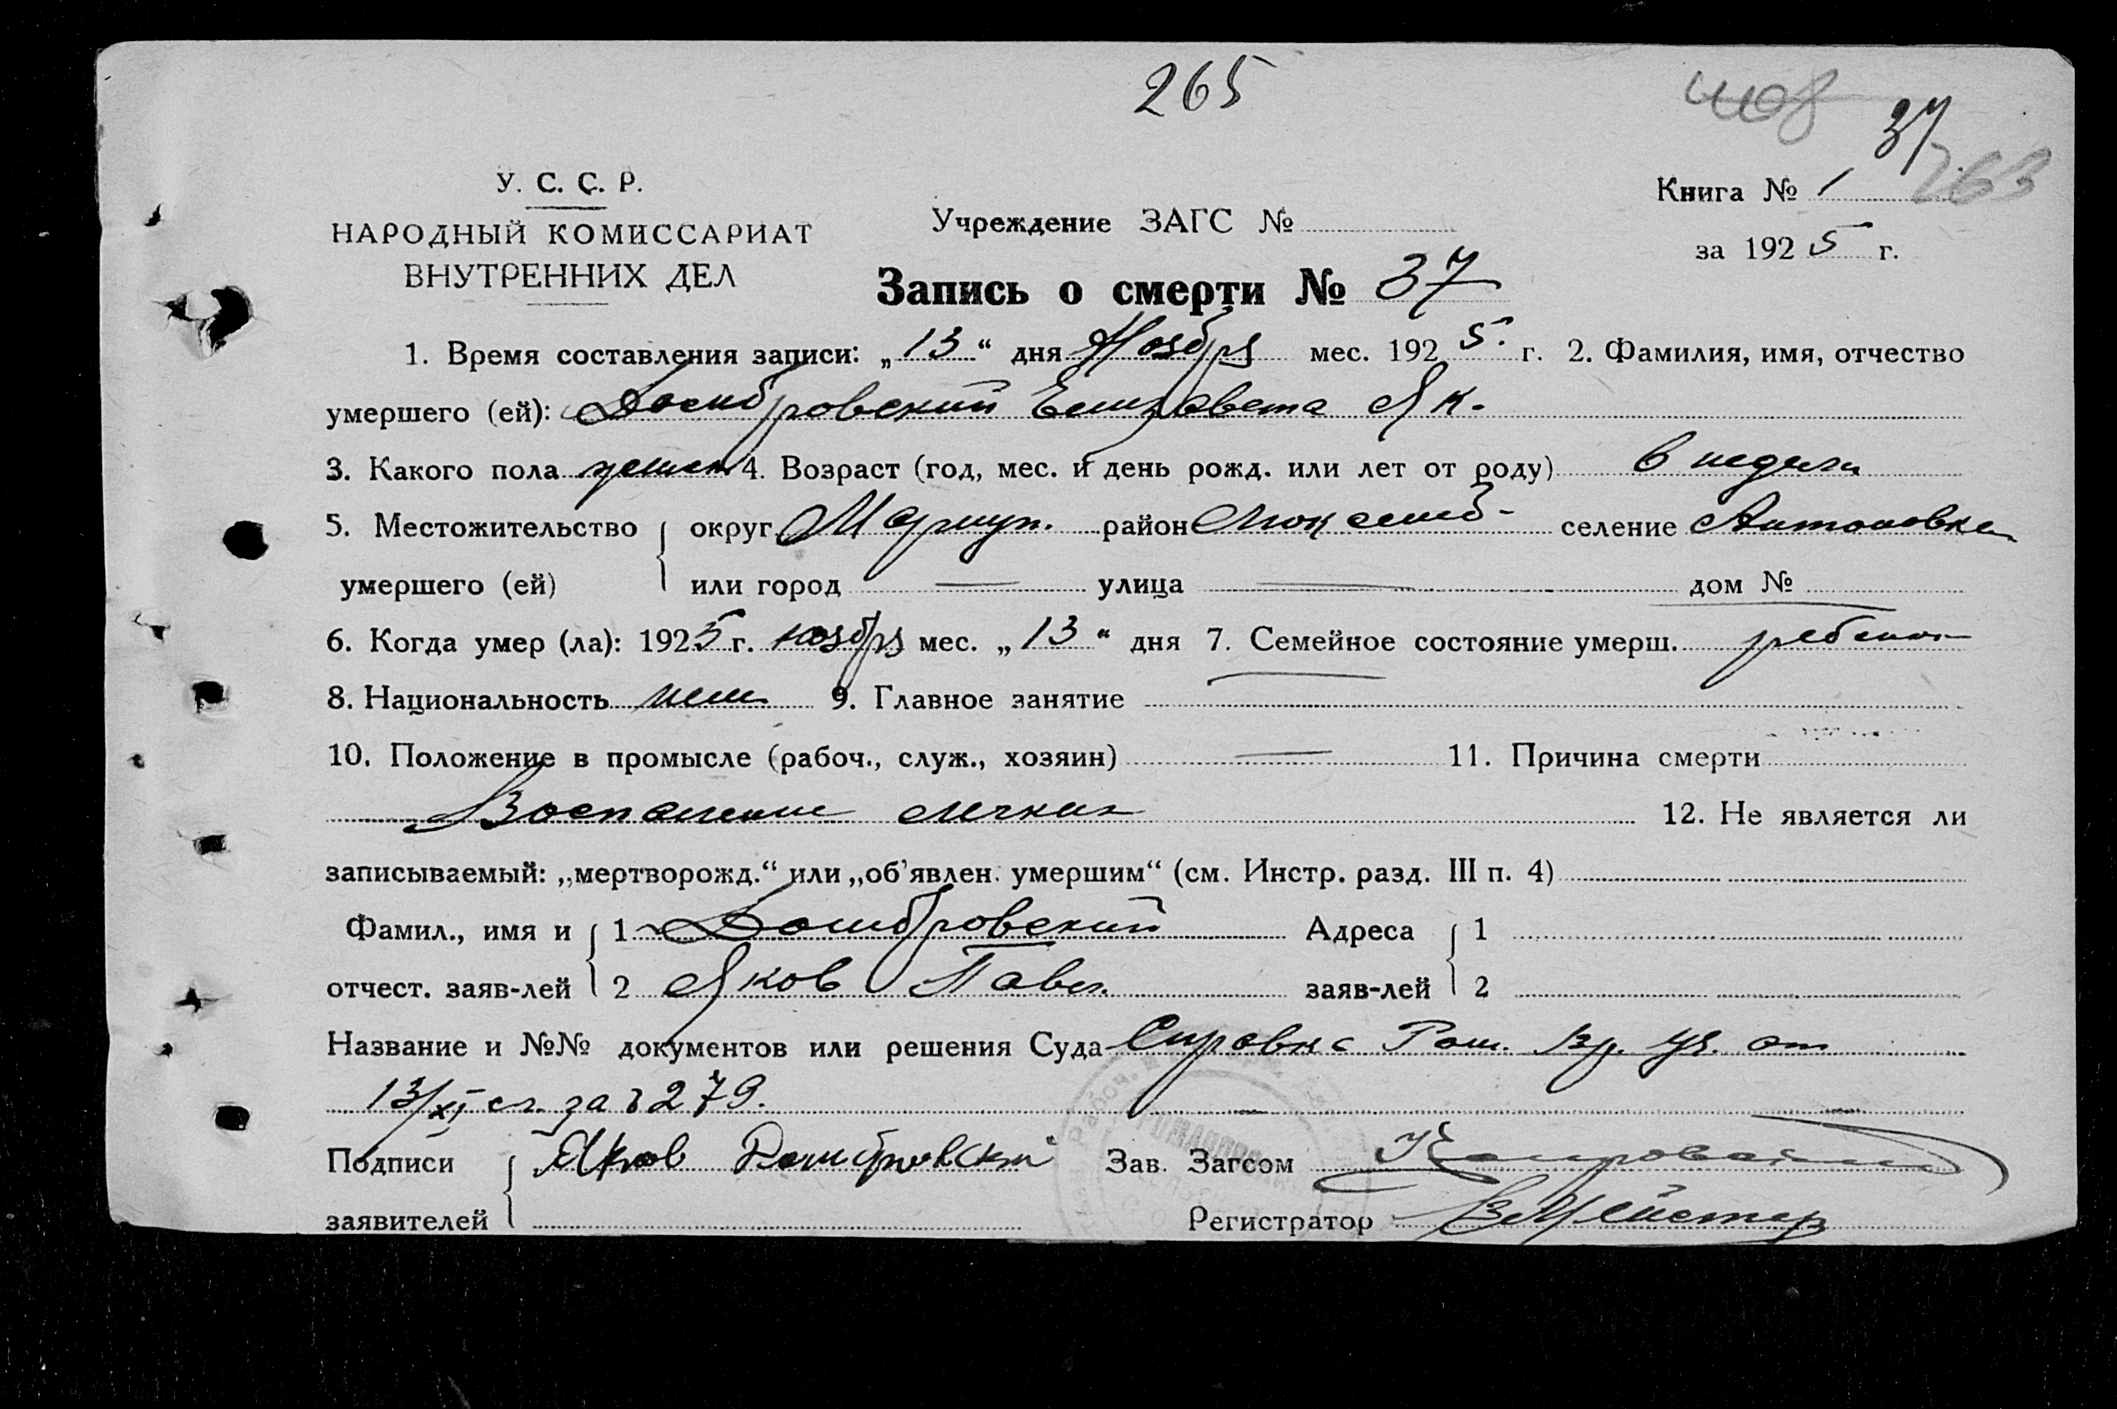 265
37
263
У. С. С. Р.
НАРОДНЫЙ КОМИССАРИАТ
ВНУТРЕННИХ ДЕЛ
Учреждение ЗАГС №
Книга № 1
за 1925 г.
Запись о смерти № 37
1. Время составления записи: „13“ дня Ноября мес. 1925 г. 2. Фамилия, имя, отчество
умершего (ей): Домбровский Елизавета Як.
3. Какого пола женск 4. Возраст (год, мес. и день рожд. или лет от роду) 6 недель
5. Местожительство округ Мариуп. район Люксемб- селение Антоновка
умершего (ей) или город — улица — дом №
6. Когда умер (ла): 1925 г. ноября мес. „13“ дня 7. Семейное состояние умерш. ребенок
8. Национальность нем 9. Главное занятие
10. Положение в промысле (рабоч., служ., хозяин) — 11. Причина смерти
Воспаление легких 12. Не является ли
записываемый: „мертворожд.“ или „об’явлен. умершим“ (см. Инстр. разд. III п. 4)
Фамил., имя и 1 Домбровский Адреса 1
отчест. заяв-лей 2 Яков Павл. заяв-лей 2
Название и №№ документов или решения Суда Справка Ром. вр. уч. от
13/XI с.г. за № 279.
Подписи Яков Домбровский Зав. Загсом
заявителей Регистратор